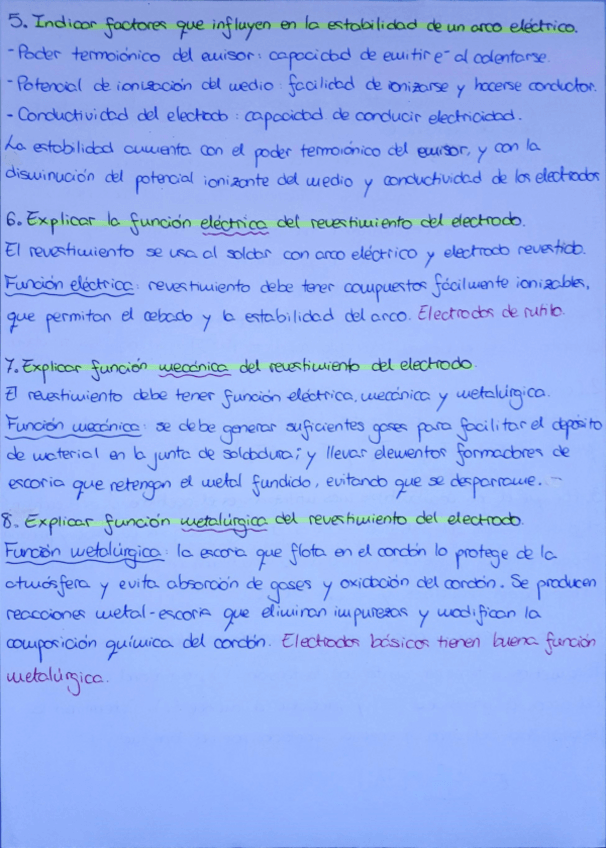 5. Indicar factores que influyen en la estabilidad de un arco eléctrico.
- Poder termoiónico del emisor: capacidad de emitir e⁻ al calentarse.
- Potencial de ionización del medio: facilidad de ionizarse y hacerse conductor.
- Conductividad del electrodo: capacidad de conducir electricidad.
La estabilidad aumenta con el poder termoiónico del emisor, y con la
disminución del potencial ionizante del medio y conductividad de los electrodos
6. Explicar la función eléctrica del revestimiento del electrodo.
El revestimiento se usa al soldar con arco eléctrico y electrodo revestido.
Función eléctrica: revestimiento debe tener compuestos fácilmente ionizables,
que permitan el cebado y la estabilidad del arco. Electrodos de rutilo.
7. Explicar función mecánica del revestimiento del electrodo.
El revestimiento debe tener función eléctrica, mecánica y metalúrgica.
Función mecánica: se debe generar suficientes gases para facilitar el depósito
de material en la junta de soldadura; y llevar elementos formadores de
escoria que retengan el metal fundido, evitando que se desparrame. -
8. Explicar función metalúrgica del revestimiento del electrodo.
Función metalúrgica: la escoria que flota en el cordón lo protege de la
atmósfera y evita absorción de gases y oxidación del cordón. Se producen
reacciones metal-escoria que eliminan impurezas y modifican la
composición química del cordón. Electrodos básicos tienen buena función
metalúrgica.